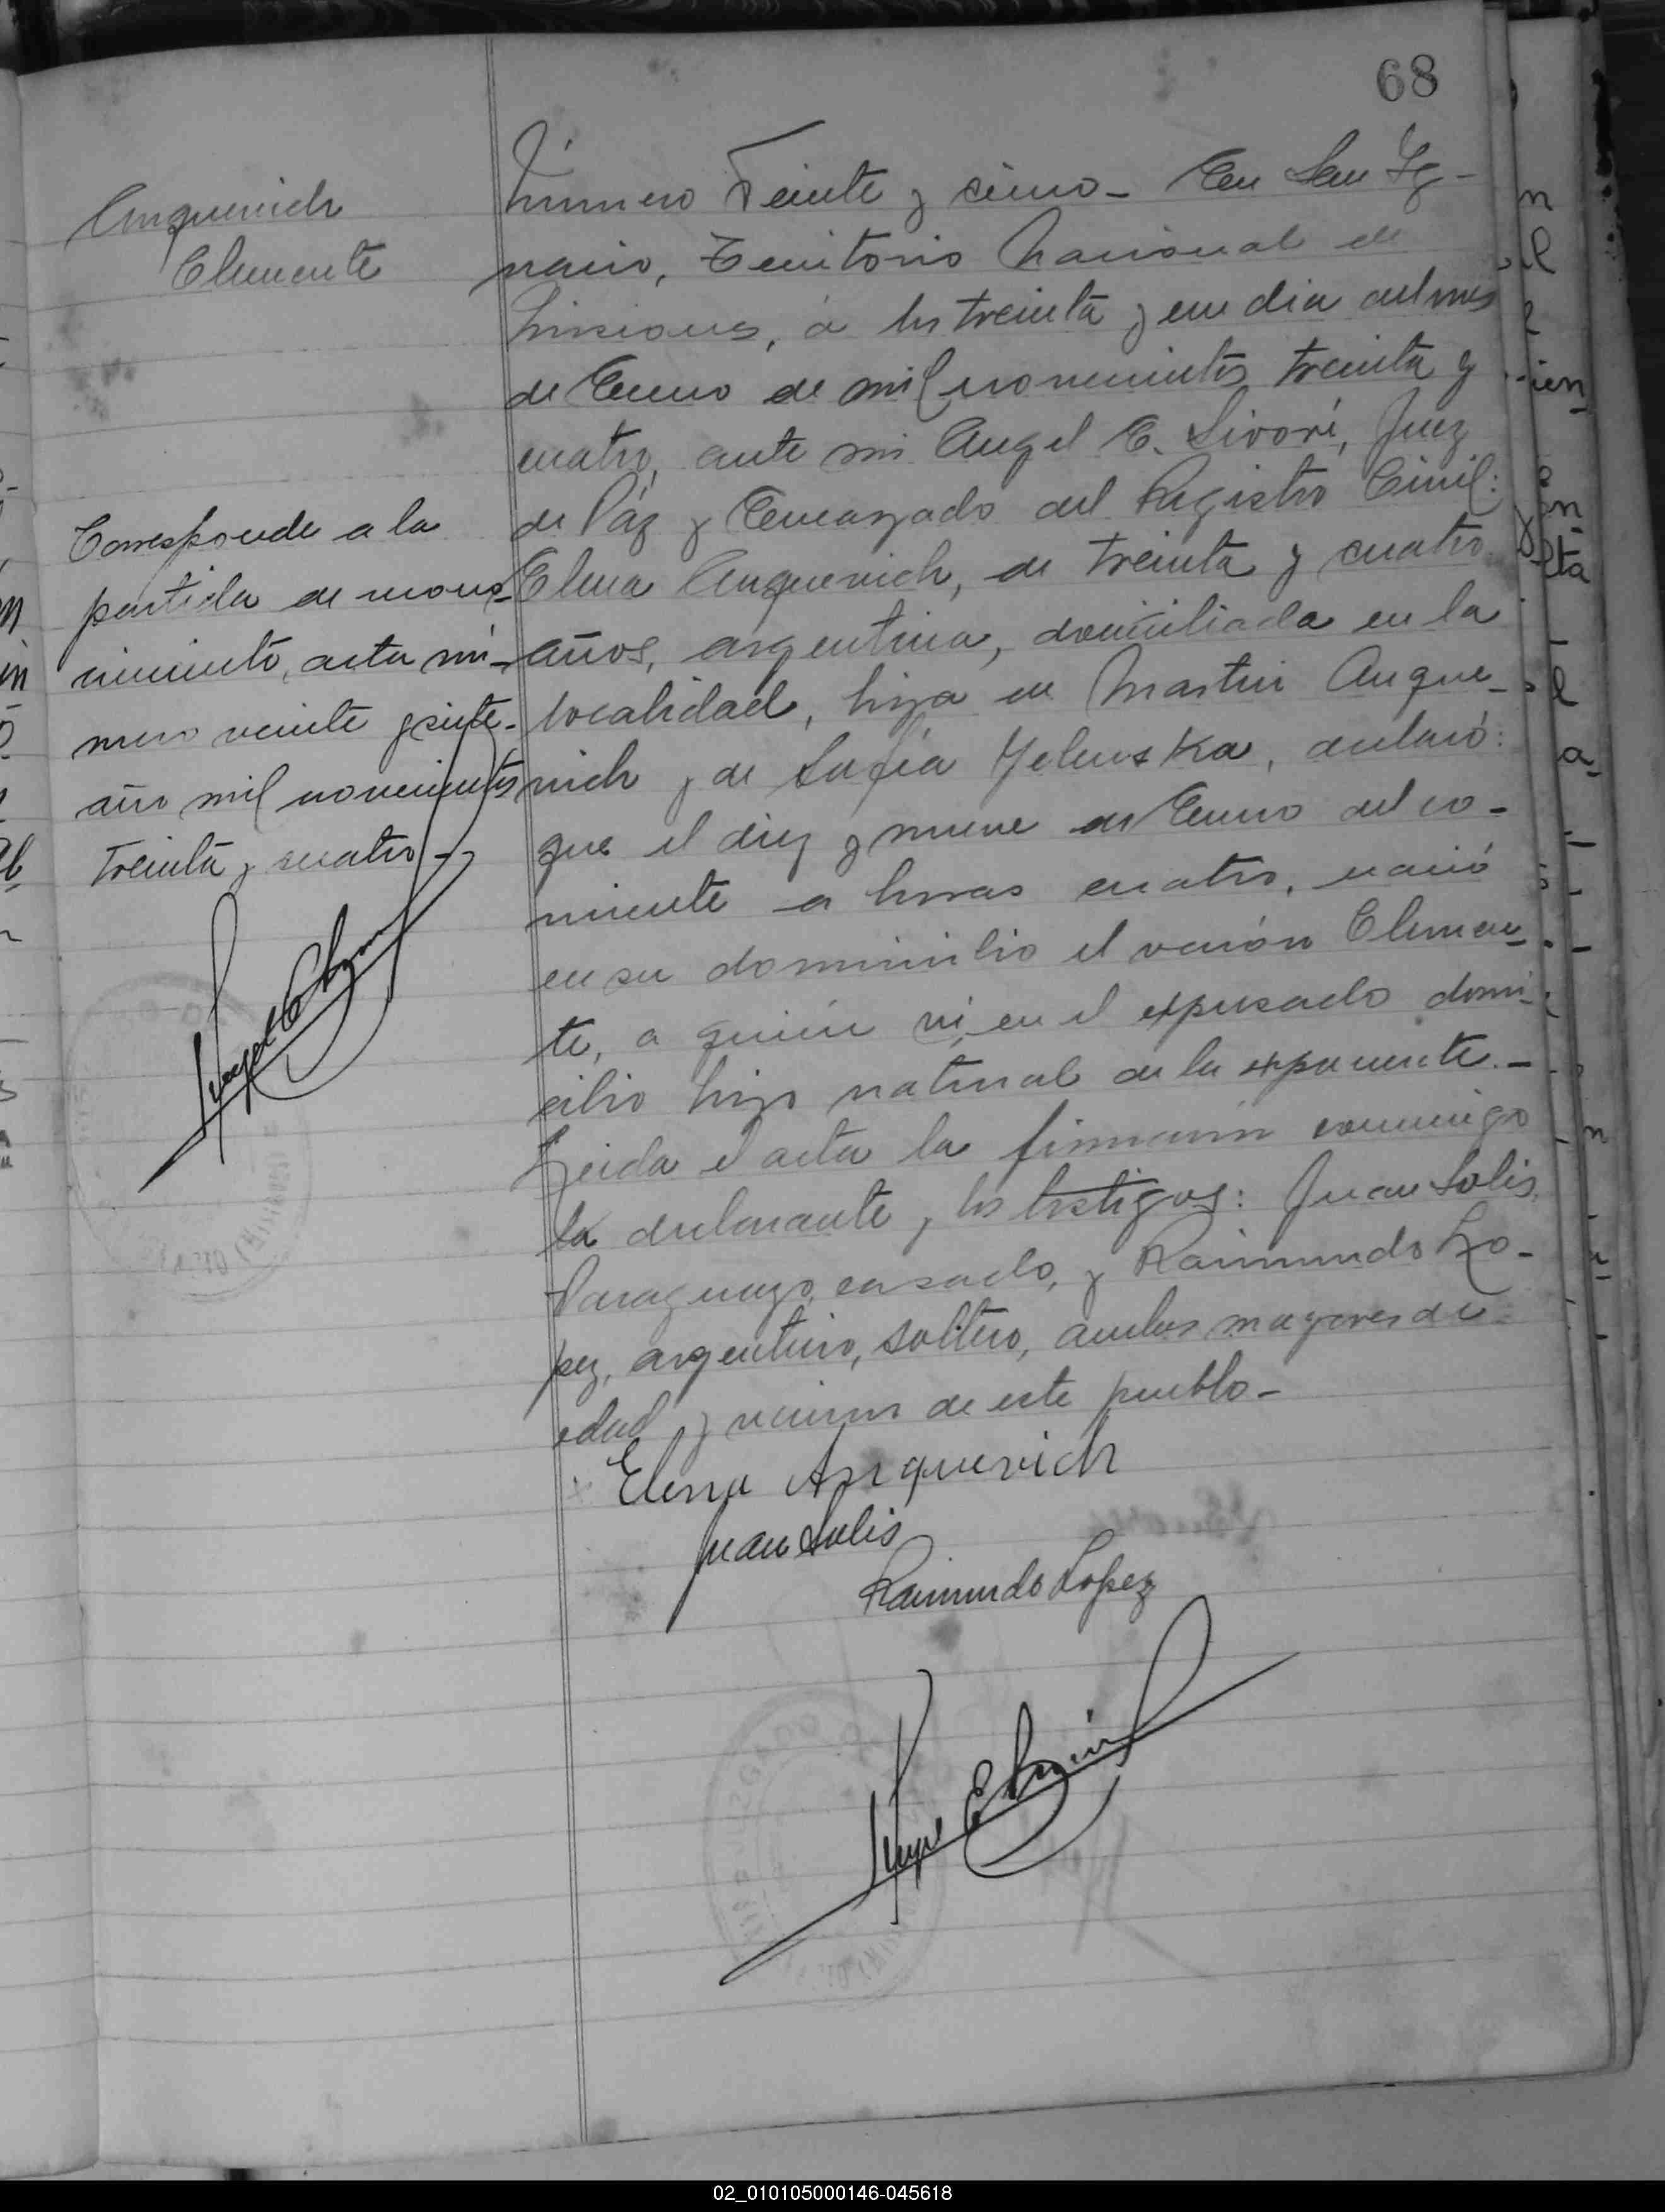 68
Anquevich
Clemente
Número Veinte y cinco - En San Ig-
nacio, Territorio Nacional de
Misiones, a los treinta y un dia del mes
de Enero de mil novecientos treinta y
cuatro, ante mi Angel E. Sivori, Juez
de Páz y Encargado del Registro Civil:
Elena Anquevich, de treinta y cuatro
años, argentina, domiciliada en la
localidad, hija de Martin Anque-
vich y de Sofia Yelenska, declaró:
que el diez y nueve de Enero del co-
rriente a horas cuatro, nació
en su domicilio el varón Clemen-
te, a quién vi en el expresado domi-
cilio hijo natural de la exponente.-
Leida el acta la firmaron conmigo
la declarante y los testigos: Juan Solis,
Paraguayo, casado, y Raimundo Lo-
pez, argentino, soltero, ambos mayores de
edad y vecinos de este pueblo-
Corresponde a la
partida de recono-
cimiento, acta nú-
mero veinte y siete-
año mil novecientos
treinta y cuatro-
Elena Anquevich
Juan Solis
Raimundo Lopez
02_010105000146-045618